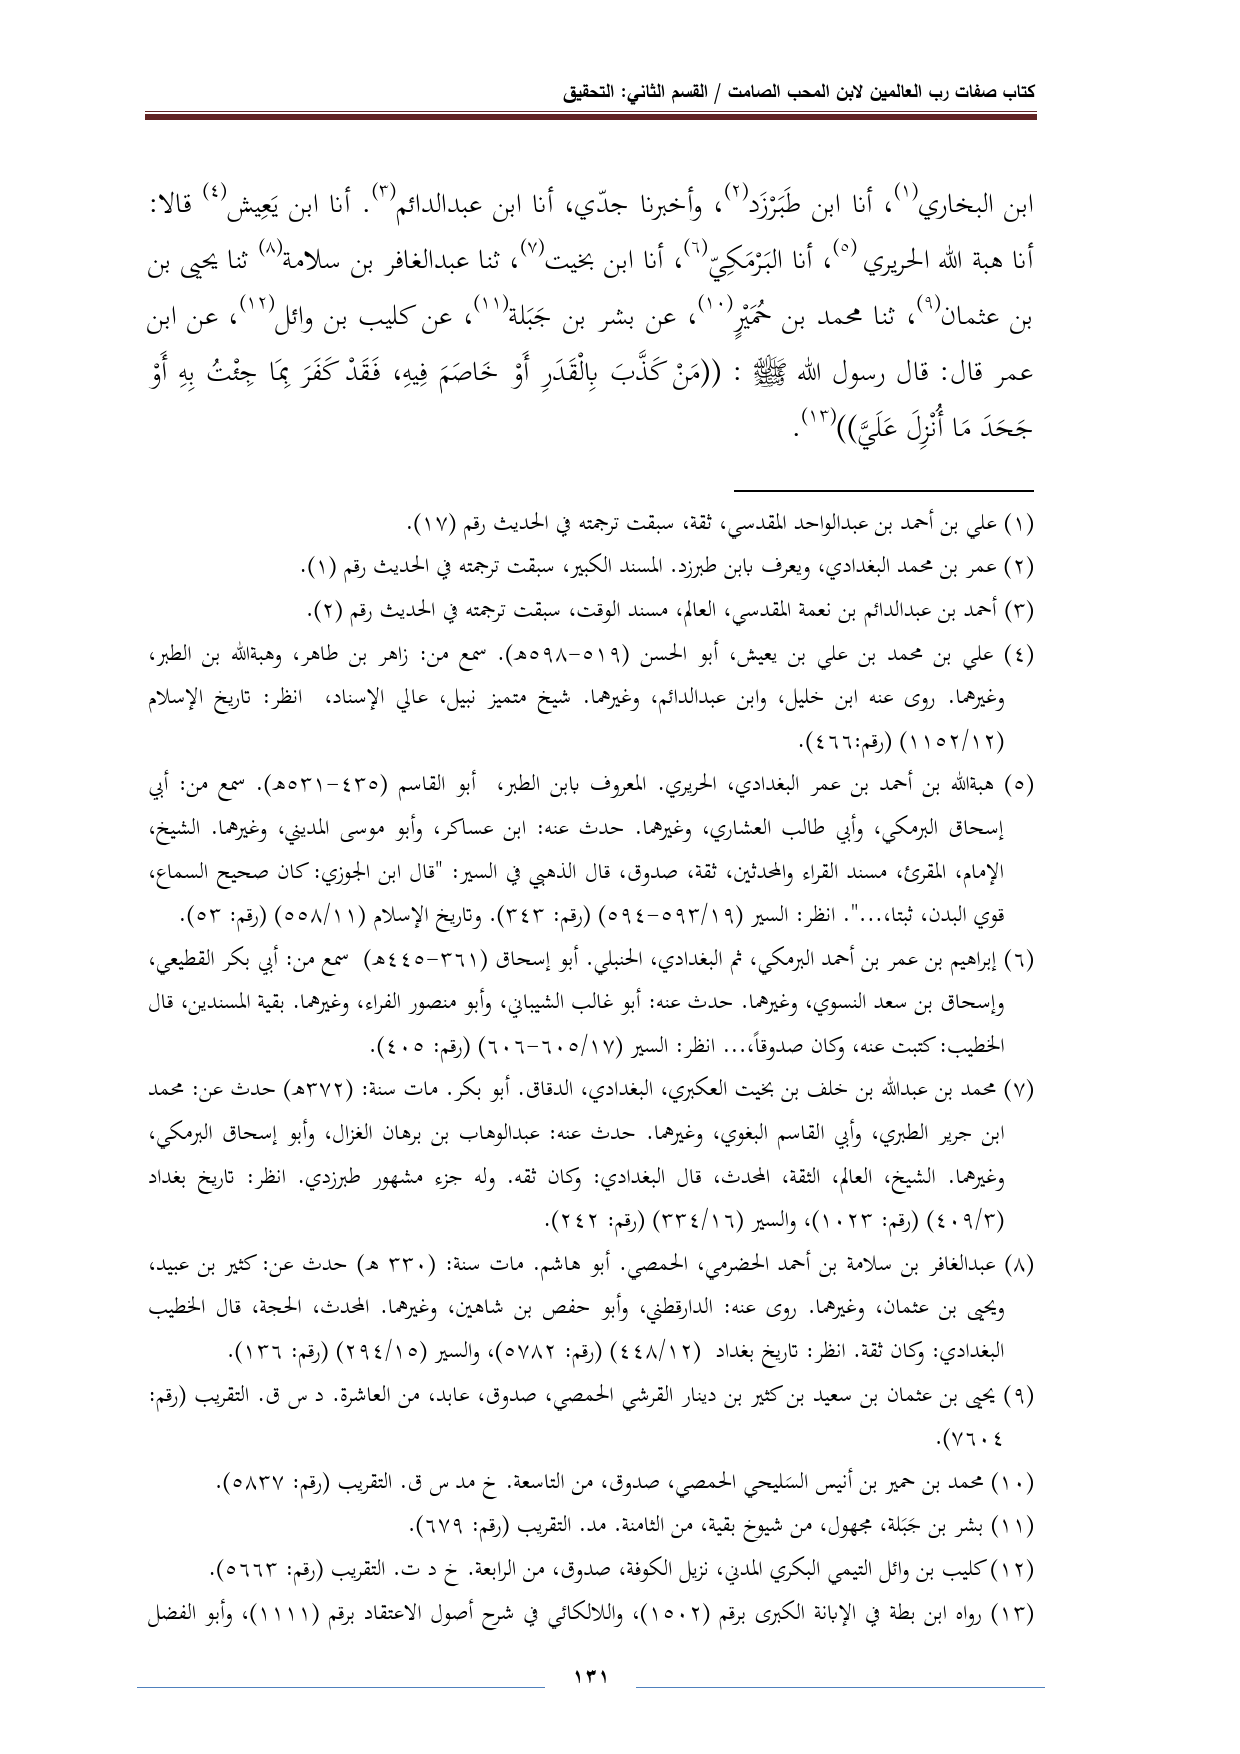 كتاب صفات رب العالمين لابن المحب الصامت / القسم الثاني: التحقيق
ابن البخاري(١)، أنا ابن طَبَرْزَد(٢)، وأخبرنا جدّي، أنا ابن عبدالدائم(٣). أنا ابن يَعِيش(٤) قالا:
أنا هبة الله الحريري (٥)، أنا البَرْمَكِيّ(٦)، أنا ابن بخيت(٧)، ثنا عبدالغافر بن سلامة(٨) ثنا يحيى بن
بن عثمان(٩)، ثنا محمد بن حُمَيْرٍ(١٠)، عن بشر بن جَبَلة(١١)، عن كليب بن وائل(١٢)، عن ابن
عمر قال: قال رسول الله ﷺ : ((مَنْ كَذَّبَ بِالْقَدَرِ أَوْ خَاصَمَ فِيهِ، فَقَدْ كَفَرَ بِمَا جِئْتُ بِهِ أَوْ
جَحَدَ مَا أُنْزِلَ عَلَيَّ))(١٣).
(١) علي بن أحمد بن عبدالواحد المقدسي، ثقة، سبقت ترجمته في الحديث رقم (١٧).
(٢) عمر بن محمد البغدادي، ويعرف بابن طبرزد. المسند الكبير، سبقت ترجمته في الحديث رقم (١).
(٣) أحمد بن عبدالدائم بن نعمة المقدسي، العالم، مسند الوقت، سبقت ترجمته في الحديث رقم (٢).
(٤) علي بن محمد بن علي بن يعيش، أبو الحسن (٥١٩-٥٩٨هـ). سمع من: زاهر بن طاهر، وهبةالله بن الطبر،
وغيرهما. روى عنه ابن خليل، وابن عبدالدائم، وغيرهما. شيخ متميز نبيل، عالي الإسناد، انظر: تاريخ الإسلام
(١١٥٢/١٢) (رقم:٤٦٦).
(٥) هبةالله بن أحمد بن عمر البغدادي، الحريري. المعروف بابن الطبر، أبو القاسم (٤٣٥-٥٣١هـ). سمع من: أبي
إسحاق البرمكي، وأبي طالب العشاري، وغيرهما. حدث عنه: ابن عساكر، وأبو موسى المديني، وغيرهما. الشيخ،
الإمام، المقرئ، مسند القراء والمحدثين، ثقة، صدوق، قال الذهبي في السير: "قال ابن الجوزي: كان صحيح السماع،
قوي البدن، ثبتا،...". انظر: السير (٥٩٣/١٩-٥٩٤) (رقم: ٣٤٣). وتاريخ الإسلام (٥٥٨/١١) (رقم: ٥٣).
(٦) إبراهيم بن عمر بن أحمد البرمكي، ثم البغدادي، الحنبلي. أبو إسحاق (٣٦١-٤٤٥هـ) سمع من: أبي بكر القطيعي،
وإسحاق بن سعد النسوي، وغيرهما. حدث عنه: أبو غالب الشيباني، وأبو منصور الفراء، وغيرهما. بقية المسندين، قال
الخطيب: كتبت عنه، وكان صدوقاً،... انظر: السير (٦٠٥/١٧-٦٠٦) (رقم: ٤٠٥).
(٧) محمد بن عبدالله بن خلف بن بخيت العكبري، البغدادي، الدقاق. أبو بكر. مات سنة: (٣٧٢هـ) حدث عن: محمد
ابن جرير الطبري، وأبي القاسم البغوي، وغيرهما. حدث عنه: عبدالوهاب بن برهان الغزال، وأبو إسحاق البرمكي،
وغيرهما. الشيخ، العالم، الثقة، المحدث، قال البغدادي: وكان ثقه. وله جزء مشهور طبرزدي. انظر: تاريخ بغداد
(٤٠٩/٣) (رقم: ١٠٢٣)، والسير (٣٣٤/١٦) (رقم: ٢٤٢).
(٨) عبدالغافر بن سلامة بن أحمد الحضرمي، الحمصي. أبو هاشم. مات سنة: (٣٣٠ هـ) حدث عن: كثير بن عبيد،
ويحيى بن عثمان، وغيرهما. روى عنه: الدارقطني، وأبو حفص بن شاهين، وغيرهما. المحدث، الحجة، قال الخطيب
البغدادي: وكان ثقة. انظر: تاريخ بغداد (٤٤٨/١٢) (رقم: ٥٧٨٢)، والسير (٢٩٤/١٥) (رقم: ١٣٦).
(٩) يحيى بن عثمان بن سعيد بن كثير بن دينار القرشي الحمصي، صدوق، عابد، من العاشرة. د س ق. التقريب (رقم:
٧٦٠٤).
(١٠) محمد بن حمير بن أنيس السَليحي الحمصي، صدوق، من التاسعة. خ مد س ق. التقريب (رقم: ٥٨٣٧).
(١١) بشر بن جَبَلة، مجهول، من شيوخ بقية، من الثامنة. مد. التقريب (رقم: ٦٧٩).
(١٢) كليب بن وائل التيمي البكري المدني، نزيل الكوفة، صدوق، من الرابعة. خ د ت. التقريب (رقم: ٥٦٦٣).
(١٣) رواه ابن بطة في الإبانة الكبرى برقم (١٥٠٢)، واللالكائي في شرح أصول الاعتقاد برقم (١١١١)، وأبو الفضل
١٣١